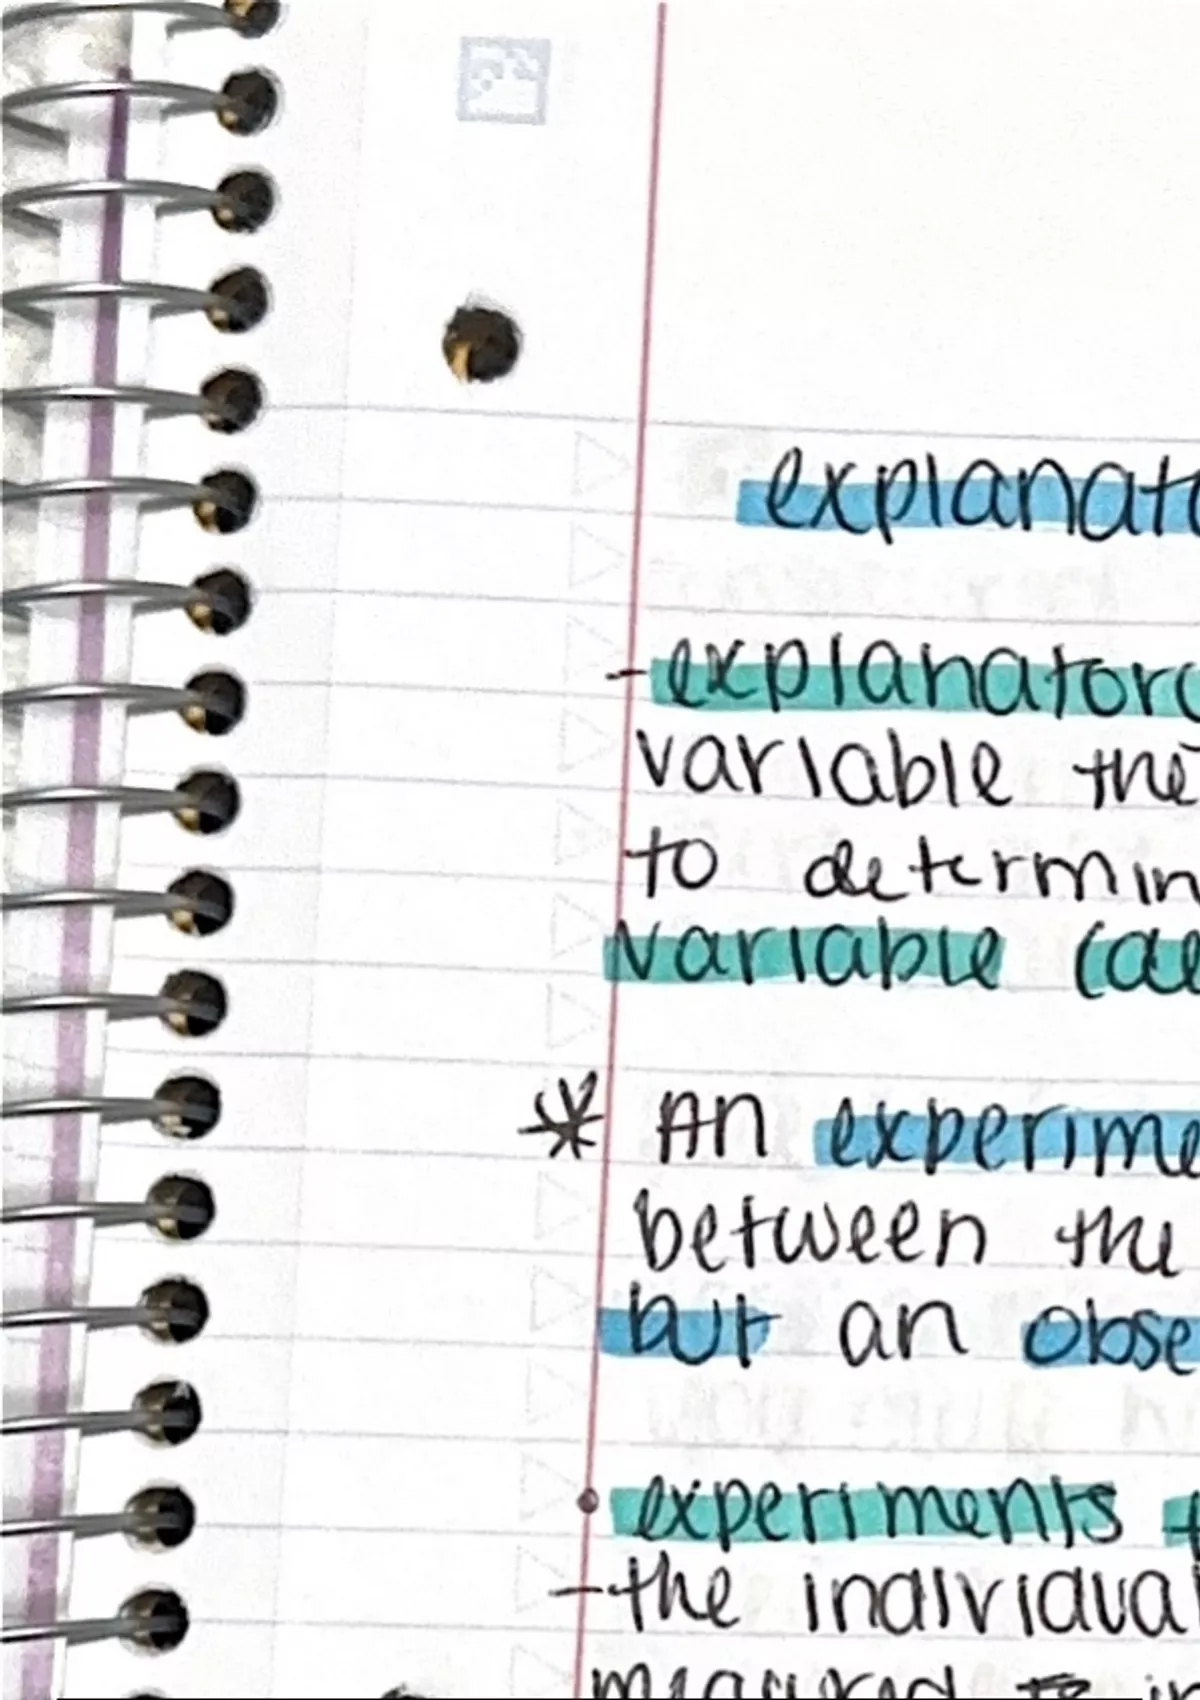 explanato
-explanatory
variable the
to determin
variable (de
* An experime
between the
but an obse
• experiments
-the individual
measured to in